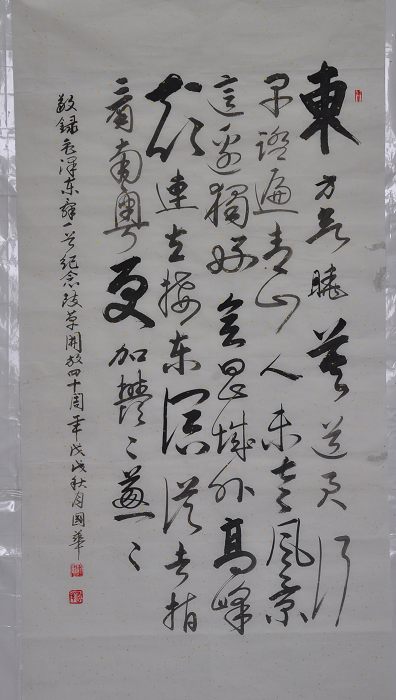 東方欲曉莫道君行
早踏遍青山人未老風景
這邊獨好會昌城外高峰
顛連直接東溟战士指
看南粵更加鬱〻蔥〻
敬錄毛澤东詞一首纪念改革開放四十周年戊戌秋月國華